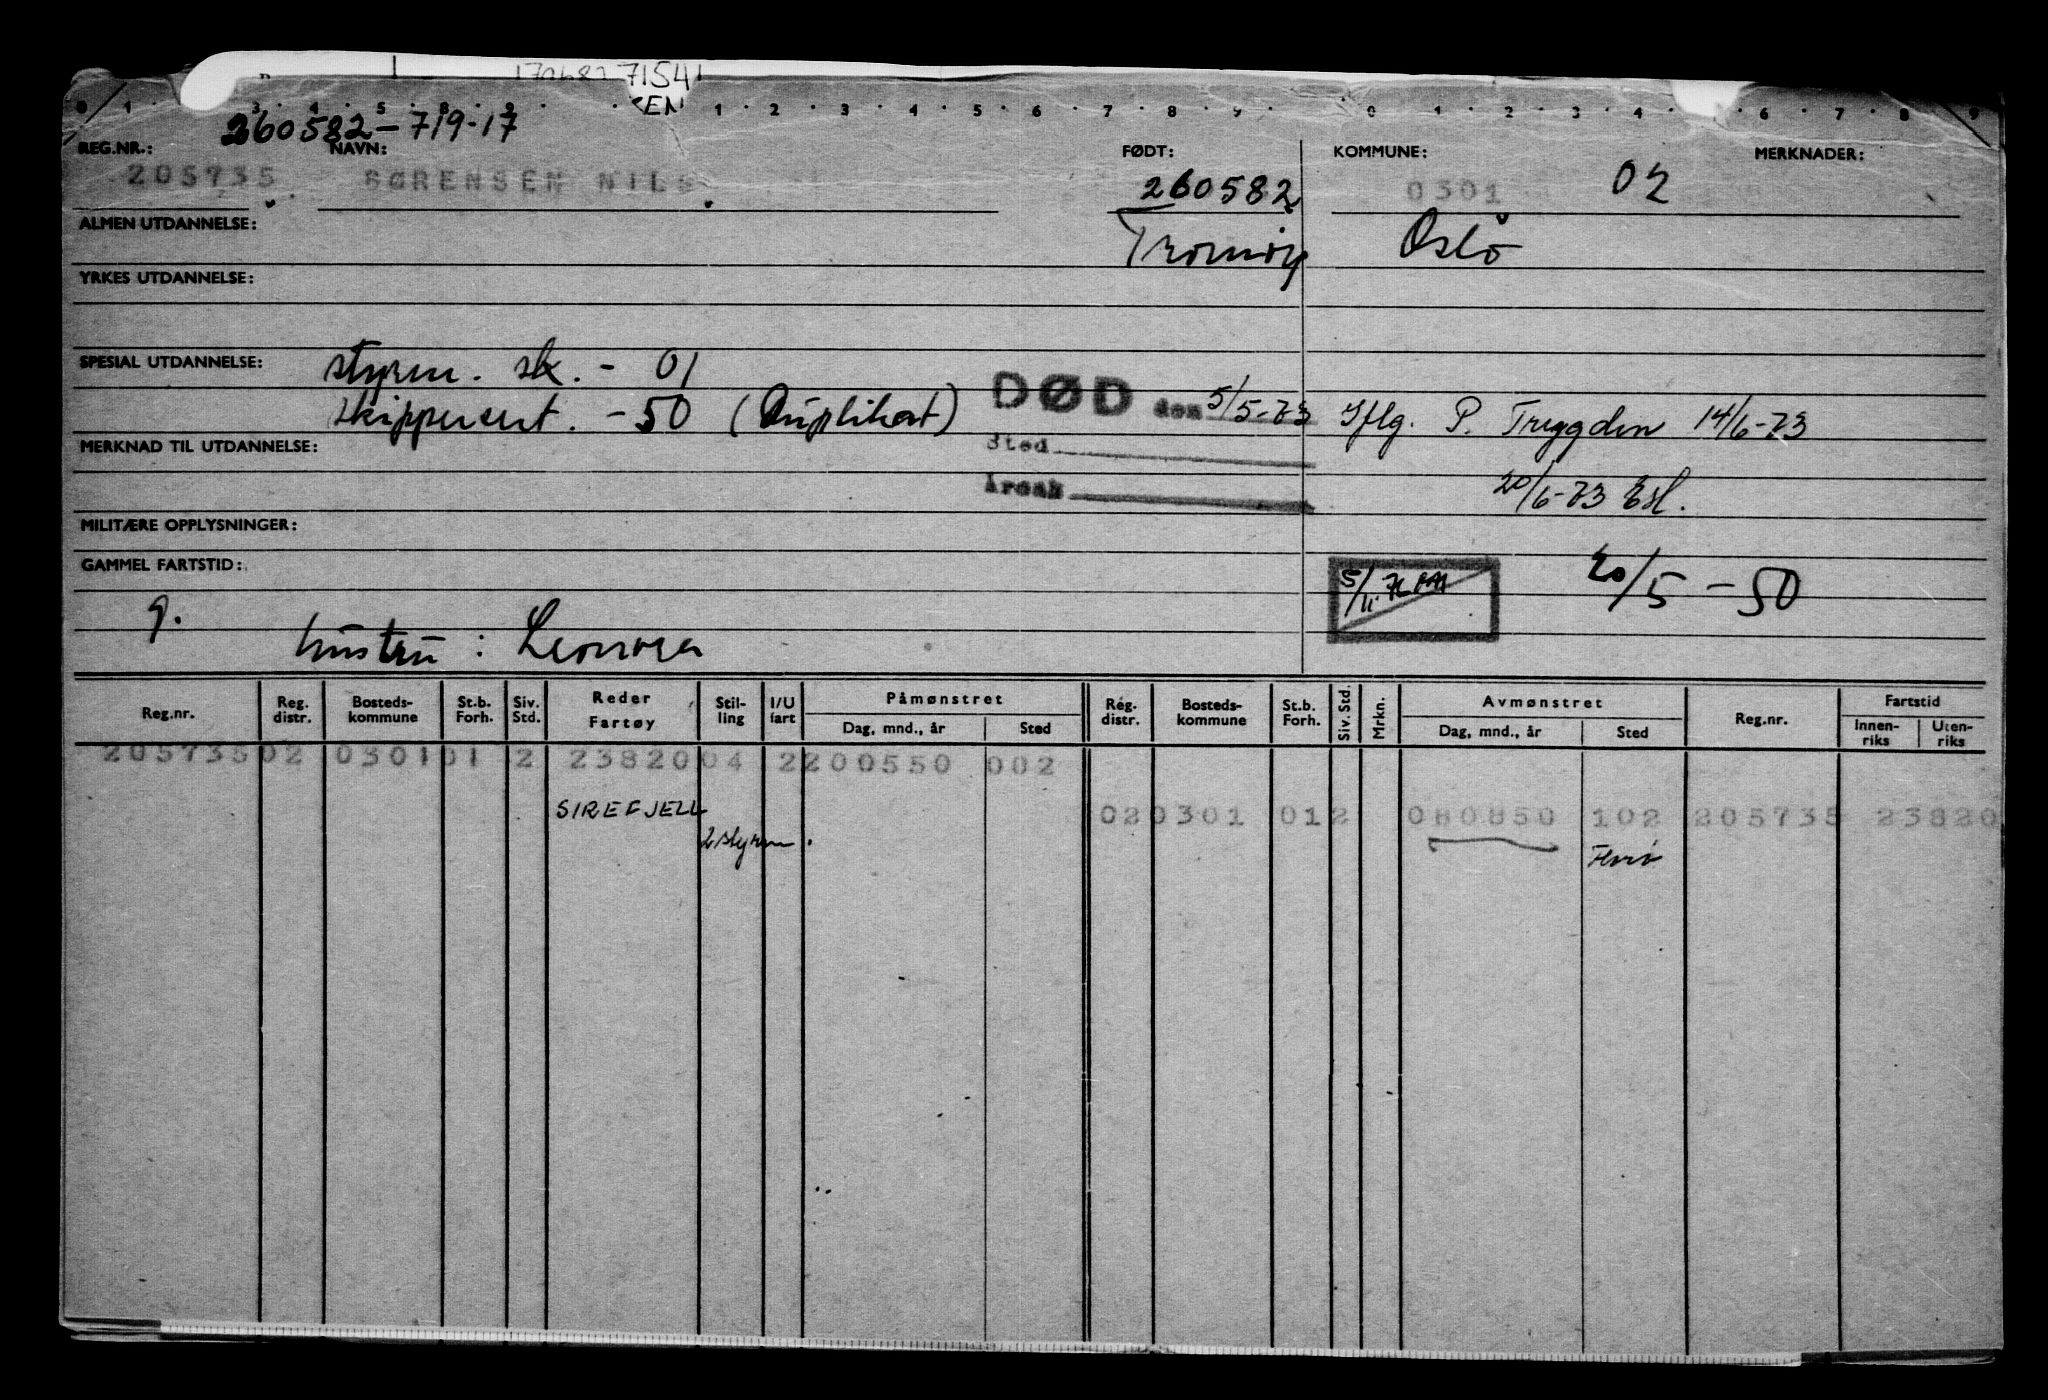 71541
0 1 3 4 5 8 9 1 2 3 4 5 6 7 8 9 0 1 2 3 4 6 7 8 9
260582-719-17
REG.NR.: NAVN: FØDT: KOMMUNE: MERKNADER:
205735 SØRENSEN NILS 260582 0301 02
ALMEN UTDANNELSE: Tromöy Oslo
YRKES UTDANNELSE:
SPESIAL UTDANNELSE: styrm. sk. - 01
skippercert. - 50 (Duplikat) DØD den 5/5-73 Iflg. P. Trygden 14/6-73
MERKNAD TIL UTDANNELSE: Sted
Årsak 20/6-73 Esl.
MILITÆRE OPPLYSNINGER:
GAMMEL FARTSTID: 5/11. 20/5-50
g.
hustru: Leonora
Reg.nr. Reg. distr. Bosteds-kommune St.b. Forh. Siv. Std. Reder Fartøy Stil-ling I/U fart Påmønstret Dag, mnd., år Sted Reg. distr. Bosteds-kommune St.b. Forh. Siv. Std. Mrkn. Avmønstret Dag, mnd., år Sted Reg.nr. Fartstid Innen-riks Uten-riks
205735 02 0301 01 2 23820 04 2 200550 002
SIREFJELL 02 0301 01 2 080850 102 205735 23820
2 styrm.